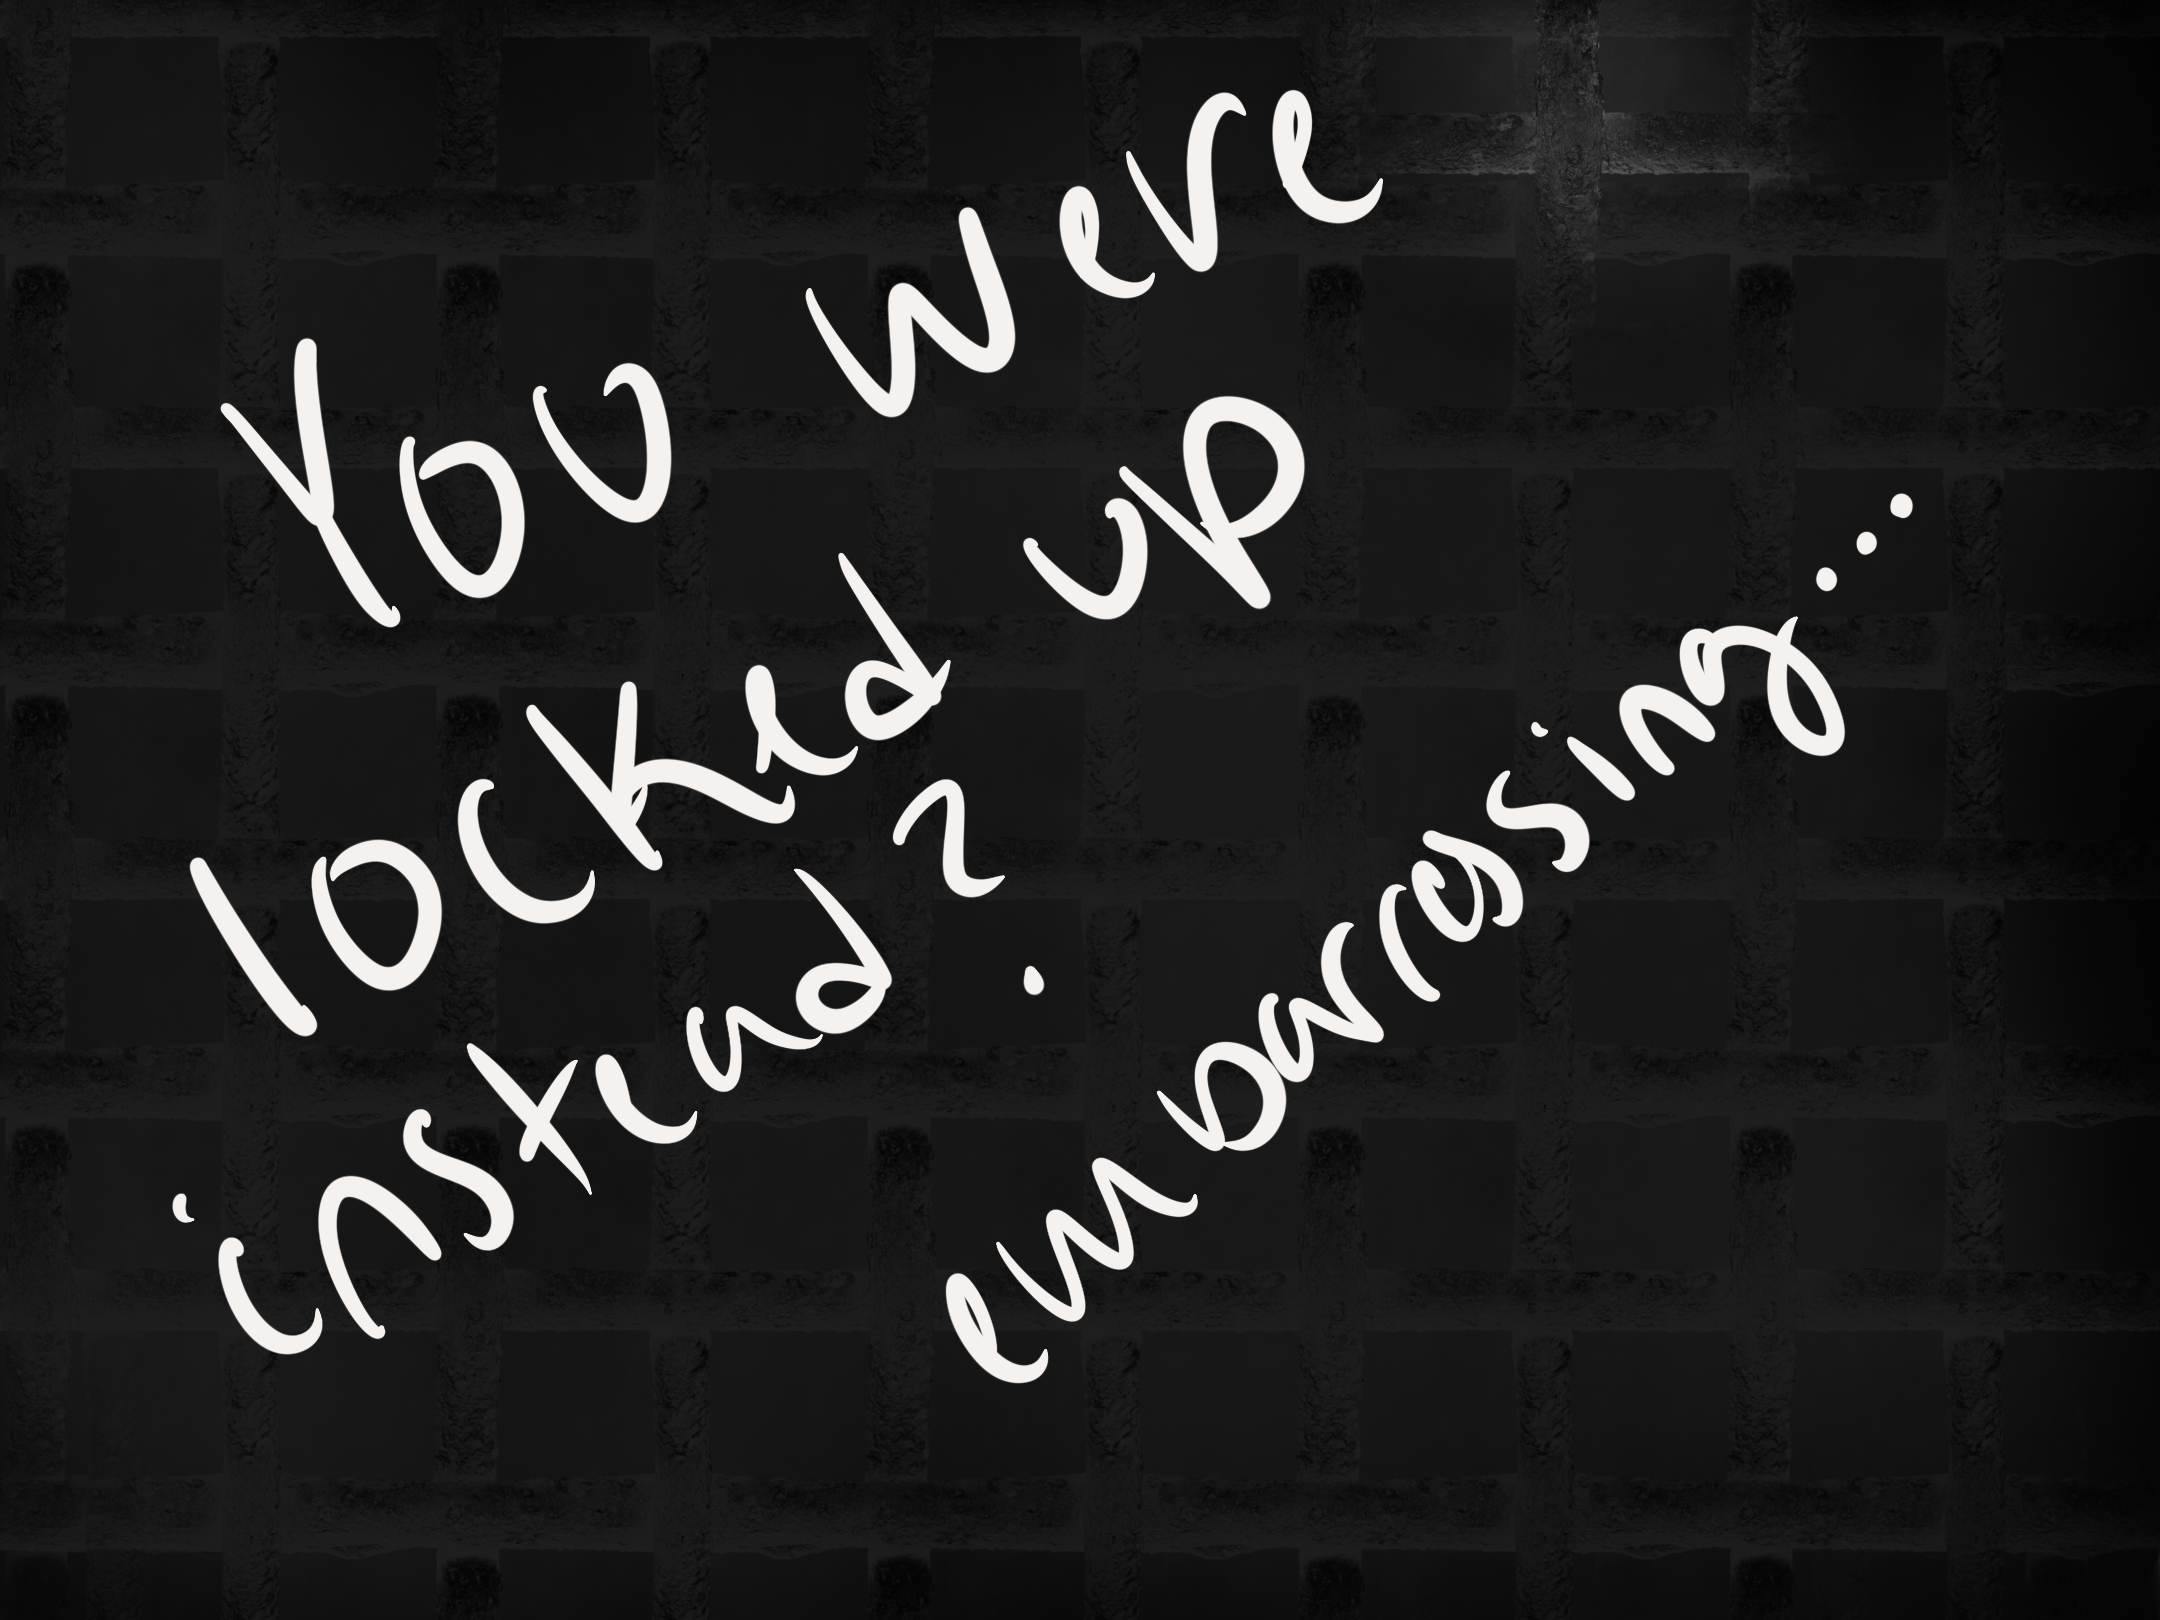 You were
locked up
instead?
embarressing...